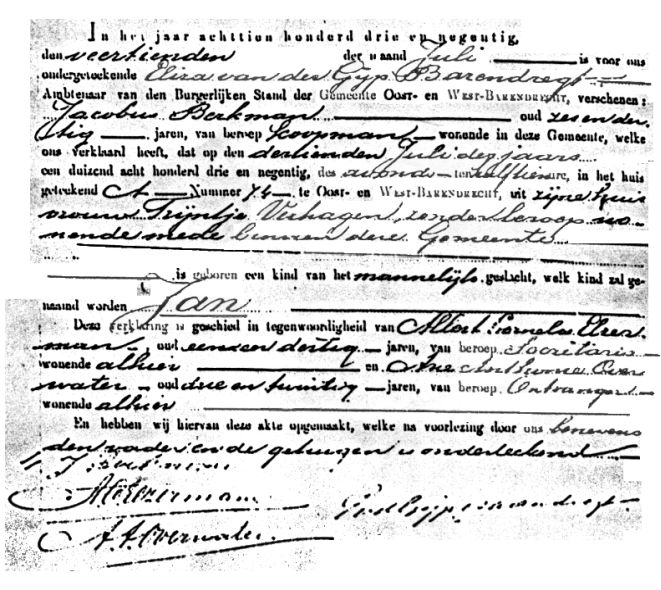 In het jaar achttien honderd drie en negentig,
den veertienden der maand Juli is voor ons
ondergeteekende van der Gijp Barendregt
Ambtenaar van den Burgerlijken Stand der Gemeente Oost- en West-Barendrecht, verschenen:
Jacobus Berkman oud zes en der
tig jaren, van beroep Koopman wonende in deze Gemeente, welke
ons verklaard heeft, dat op den dertienden Juli dezes jaars
een duizend acht honderd drie en negentig, des avonds ten elf ure, in het huis
geteekend A Nummer 74 te Oost- en West-Barendrecht, uit zijne huis
vrouw Trijntje Verhagen, zonder beroep wo
nende mede binnen deze Gemeente
is geboren een kind van het mannelijk geslacht, welk kind zal ge-
naamd worden Jan
Deze verklaring is geschied in tegenwoordigheid van Albert Cornelis
man oud een en dertig jaren, van beroep Secretaris
wonende alhier en Arie Over
water oud drie en twintig jaren, van beroep Ontvanger
wonende alhier
En hebben wij hiervan deze akte opgemaakt, welke na voorlezing door ons benevens
den vader en de getuigen is onderteekend
A A Overwater